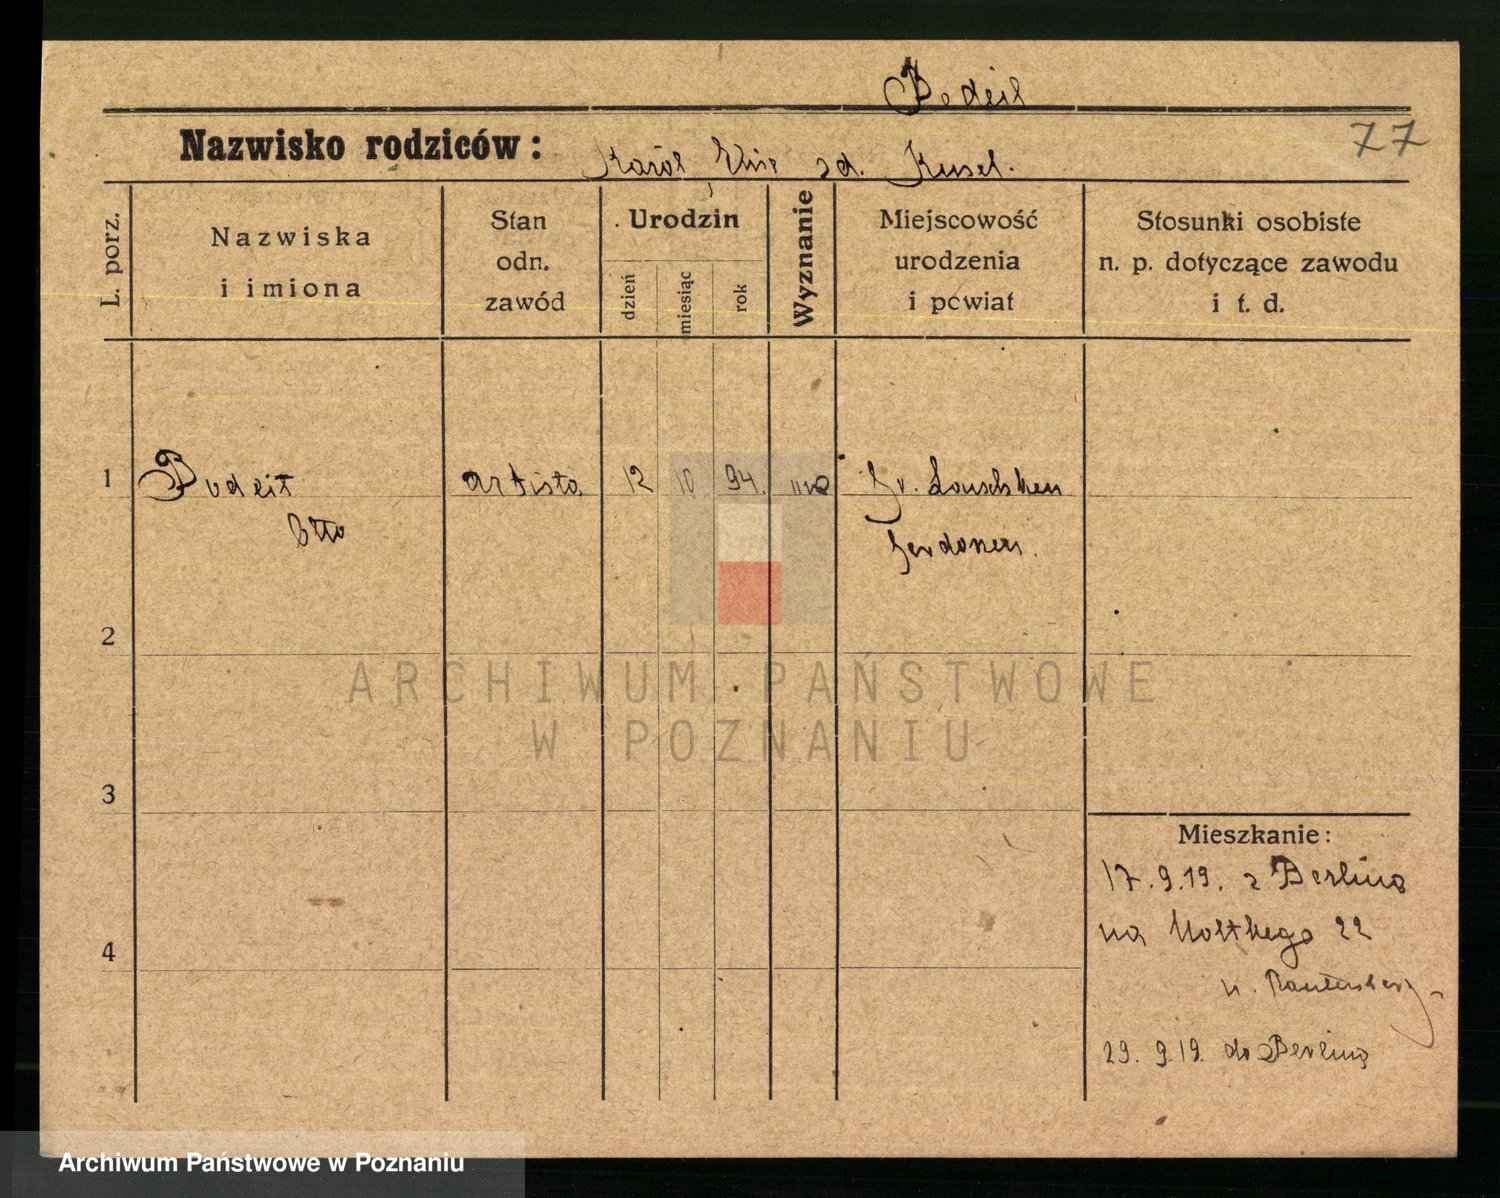 77
Nazwisko rodziców:
Karol
L. porz.
Nazwiska
i imiona
Stan
odn.
zawód
Urodzin
dzień
miesiąc
rok
Wyznanie
Miejscowość
urodzenia
i powiat
Stosunki osobiste
n. p. dotyczące zawodu
i t. d.
1 Budeit artista 12 10 94. Gr.
Otto
2
ARCHIWUM PAŃSTWOWE
W POZNANIU
3
Mieszkanie:
17.9.19. z Berlina
4
na Moltkego 22
29. 9.19. do Berlina
Archiwum Państwowe w Poznaniu